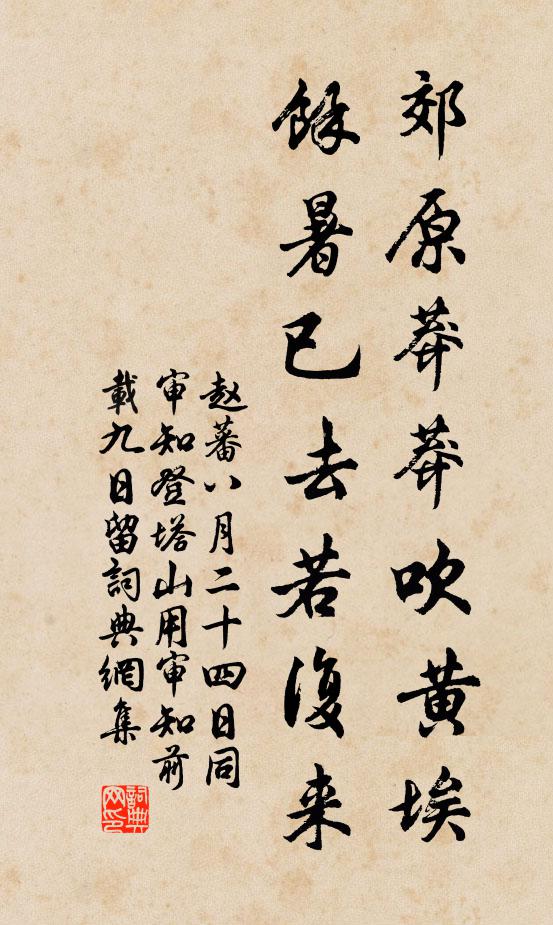 郊原莽莽吹黄埃
餘暑已去若復来
赵蕃八月二十四日同
审知登塔山用审知前
載九日留詞典網集
詞典
网印